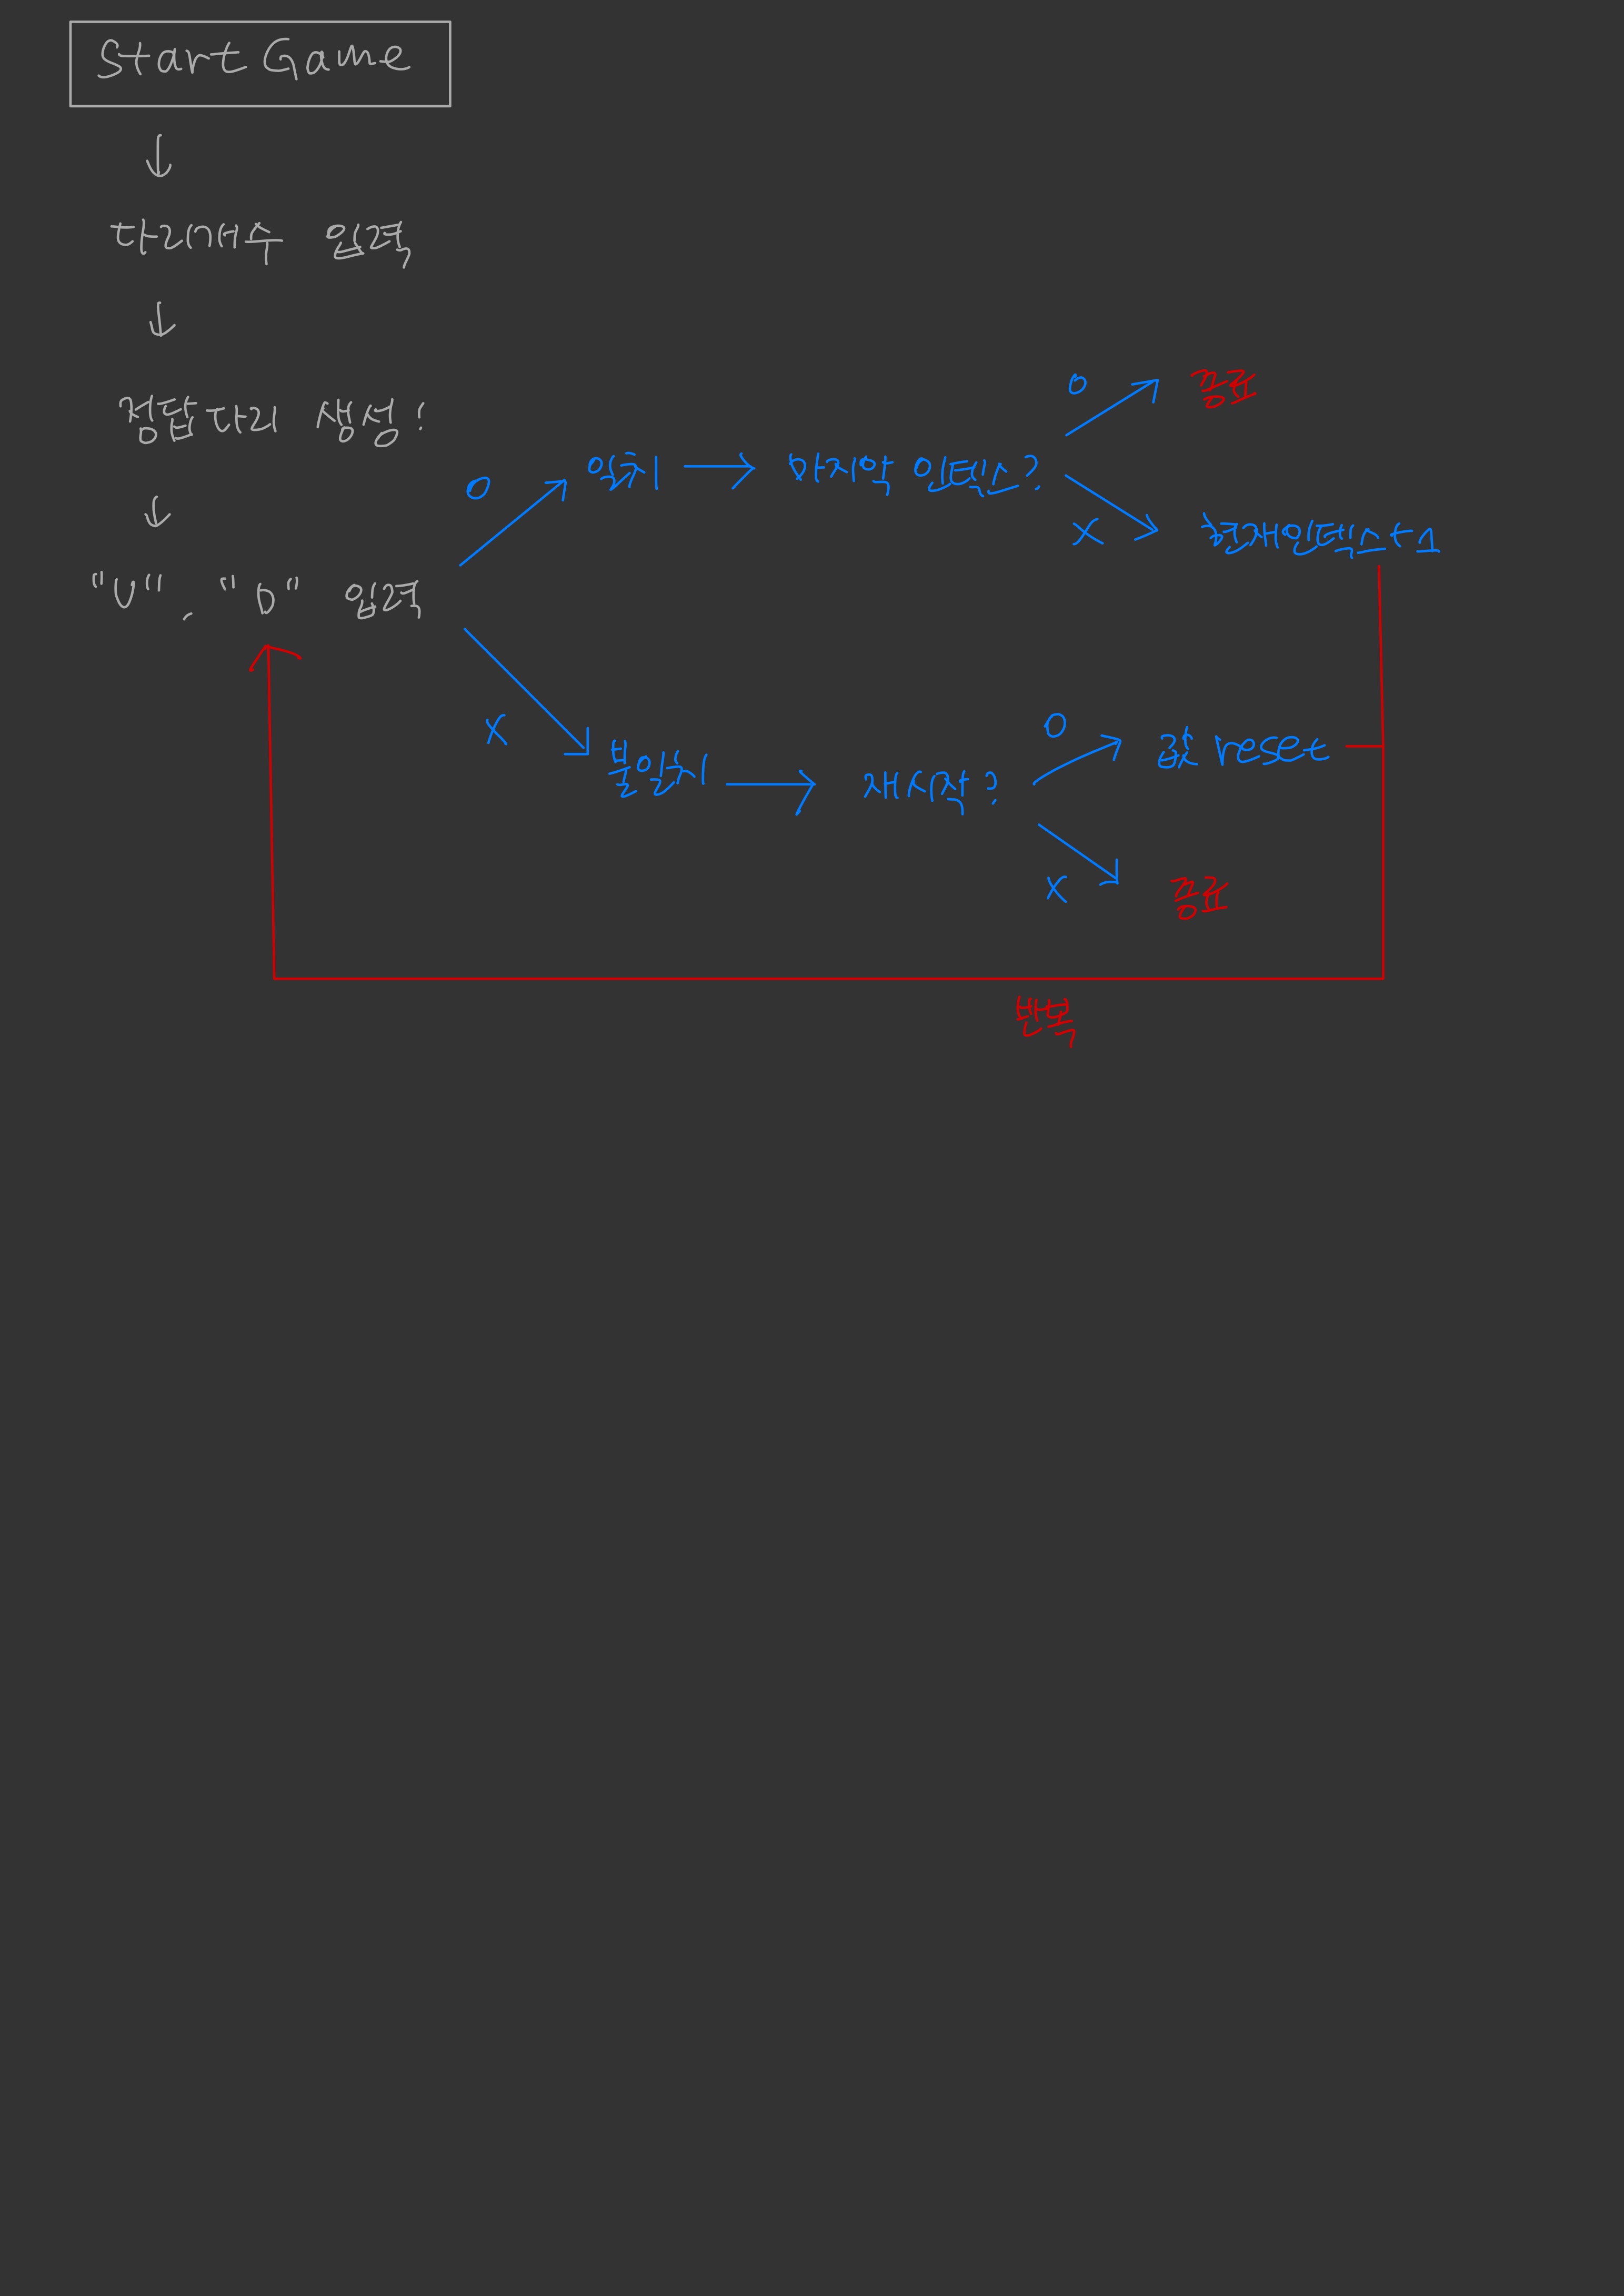 Start Game
↓
다리개수 입력
↓
정답다리 생성!
↓
"U", "D" 입력
O
일치 → 마지막 인덱스?
O
종료
X
현재인덱스 + 1
X
불일치 → 재시작?
O
값 reset
X
종료
반복